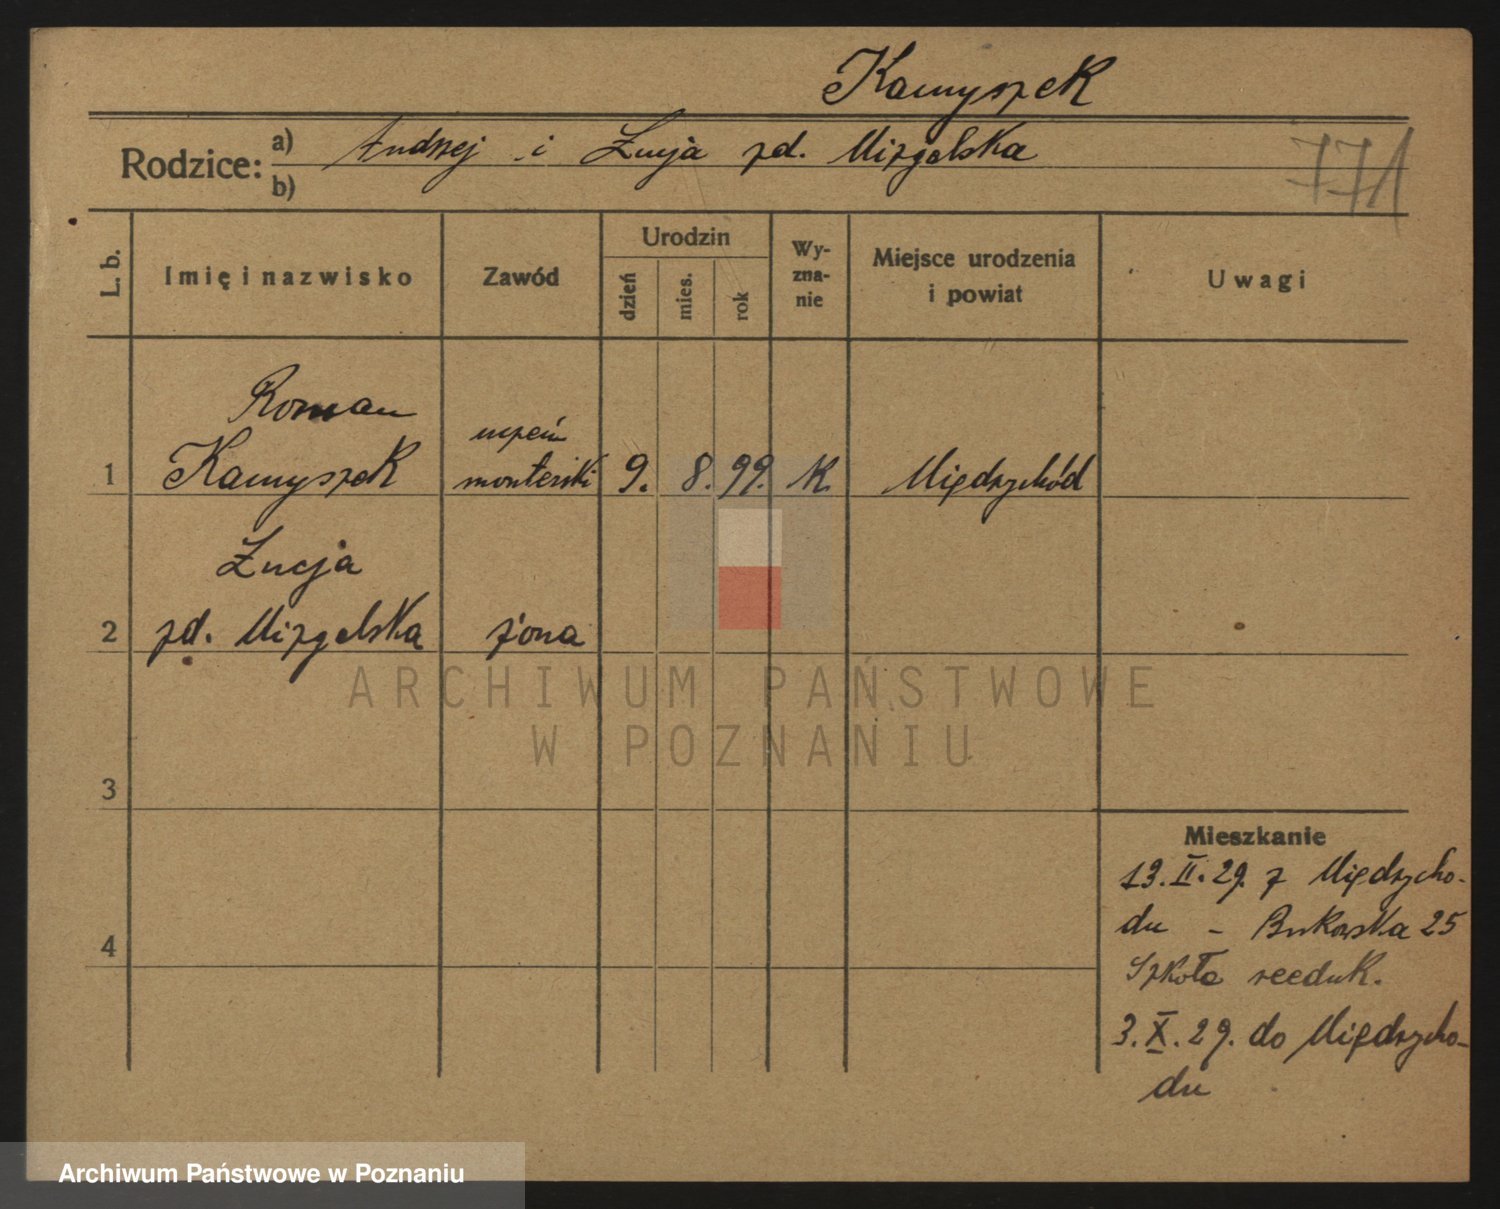 Kamyszek
Rodzice: a) Andrzej i Łucja zd. Mizgalska
b)
771
L. b.
Imię i nazwisko
Zawód
Urodzin
dzień
mies.
rok
Wy-
zna-
nie
Miejsce urodzenia
i powiat
Uwagi
Roman
1 Kamyszek
uczeń
monterski 9. 8. 99. K. Międzychód
Łucja
2 zd. Mizgalska żona
3
4
Mieszkanie
13.II.29. z Międzycho-
du - Bukowska 25
Szkoła reeduk.
3.X.29. do Międzycho-
du
ARCHIWUM PAŃSTWOWE
W POZNANIU
Archiwum Państwowe w Poznaniu